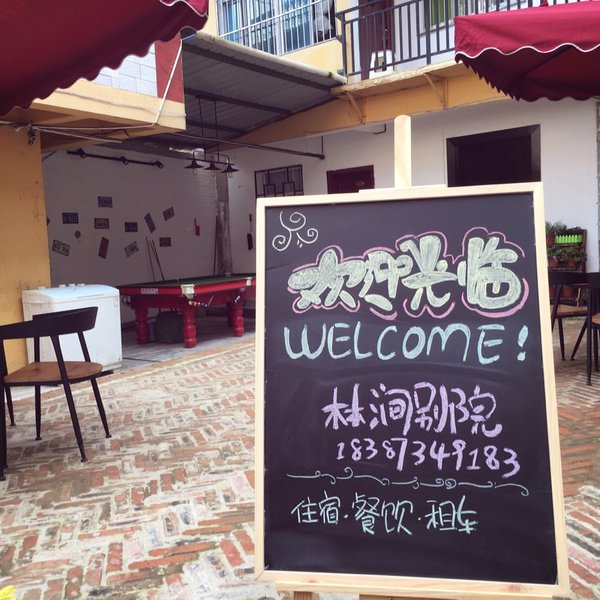 欢迎光临
WELCOME!
林涧别院
18387349183
住宿·餐饮·租车